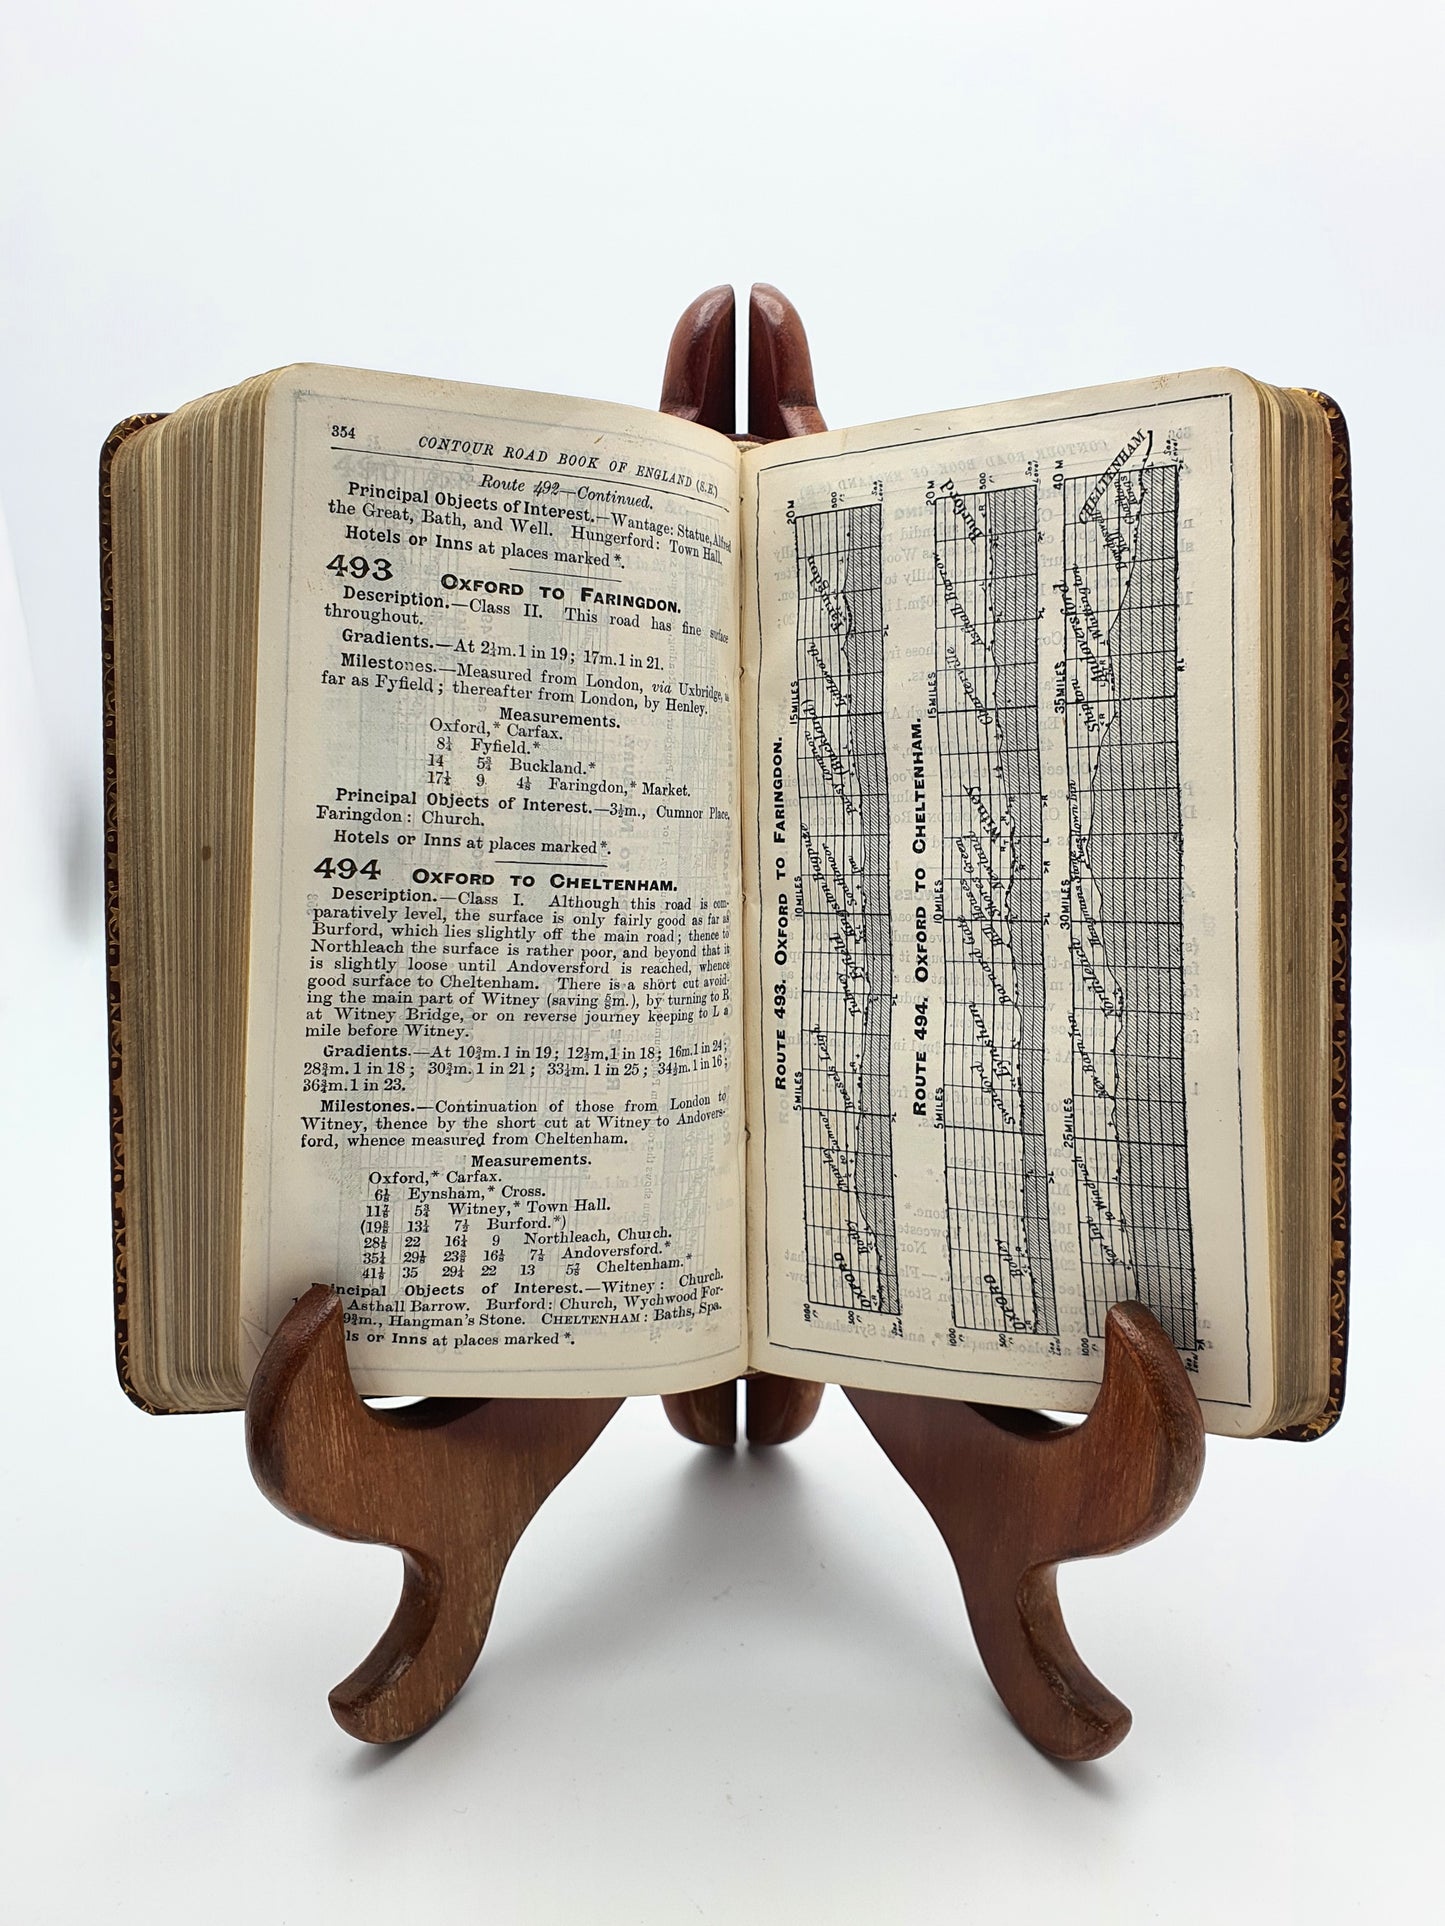 354
CONTOUR ROAD BOOK OF ENGLAND (S.E.)
Route 492—Continued.
Principal Objects of Interest.—Wantage: Statue, Alfred
the Great, Bath, and Well. Hungerford: Town Hall.
Hotels or Inns at places marked *.
493 OXFORD TO FARINGDON.
Description.—Class II. This road has fine surface
throughout.
Gradients.—At 2½m. 1 in 19; 17m. 1 in 21.
Milestones.—Measured from London, via Uxbridge, as
far as Fyfield; thereafter from London, by Henley.
Measurements.
Oxford,* Carfax.
8¼ Fyfield.*
14 5¾ Buckland.*
17¼ 9 Faringdon,* Market.
Principal Objects of Interest.—3½m., Cumnor Place,
Faringdon: Church.
Hotels or Inns at places marked *.
494 OXFORD TO CHELTENHAM.
Description.—Class I. Although this road is com-
paratively level, the surface is only fairly good as far as
Burford, which lies slightly off the main road; thence to
Northleach the surface is rather poor, and beyond that it
is slightly loose until Andoversford is reached, whence
good surface to Cheltenham. There is a short cut avoid-
ing the main part of Witney (saving ⅝m.), by turning to R
at Witney Bridge, or on reverse journey keeping to L a
mile before Witney.
Gradients.—At 10¾m. 1 in 19; 12½m. 1 in 18; 16m. 1 in 24;
28¾m. 1 in 18; 30¾m. 1 in 21; 33¼m. 1 in 25; 34½m. 1 in 16;
36¾m. 1 in 23.
Milestones.—Continuation of those from London to
Witney, thence by the short cut at Witney to Andovers-
ford, whence measured from Cheltenham.
Measurements.
Oxford,* Carfax.
6⅛ Eynsham,* Cross.
11⅞ 5¾ Witney,* Town Hall.
(19⅜ 13¼ 7½ Burford.*)
28⅛ 22 16¼ 9 Northleach, Church.
35¼ 29⅛ 23⅜ 16⅛ 7⅛ Andoversford.*
41⅛ 35 29¼ 22 13 5⅞ Cheltenham.*
incipal Objects of Interest.—Witney: Church.
Asthall Barrow. Burford: Church, Wychwood For-
9¾m., Hangman's Stone. CHELTENHAM: Baths, Spa.
ls or Inns at places marked *.
ROUTE 493. OXFORD TO FARINGDON.
5 MILES 10 MILES 15 MILES 20 M
1000 500 500
Sea Level
OXFORD Botley Chawley to Cumnor Bessels Leigh Tubney Fyfield Kingston Bagpuize Southmoor Inn Pusey Common (Buckland) Littleworth Faringdon
ROUTE 494. OXFORD TO CHELTENHAM.
5 MILES 10 MILES 15 MILES 20 M
1000 500 500
Sea Level
OXFORD Botley Swinford Eynsham Barnard Gate Hill Shores Green Newland Witney Charterville Asthall Barrow Burford
25 MILES 30 MILES 35 MILES 40 M
1000
Sea Level
New Inn to Windrush New Barn Inn Northleach Hangmanstone Puesdown Inn Shipton Andoversford Whittington Dowdeswell Hill Charlton Kings CHELTENHAM